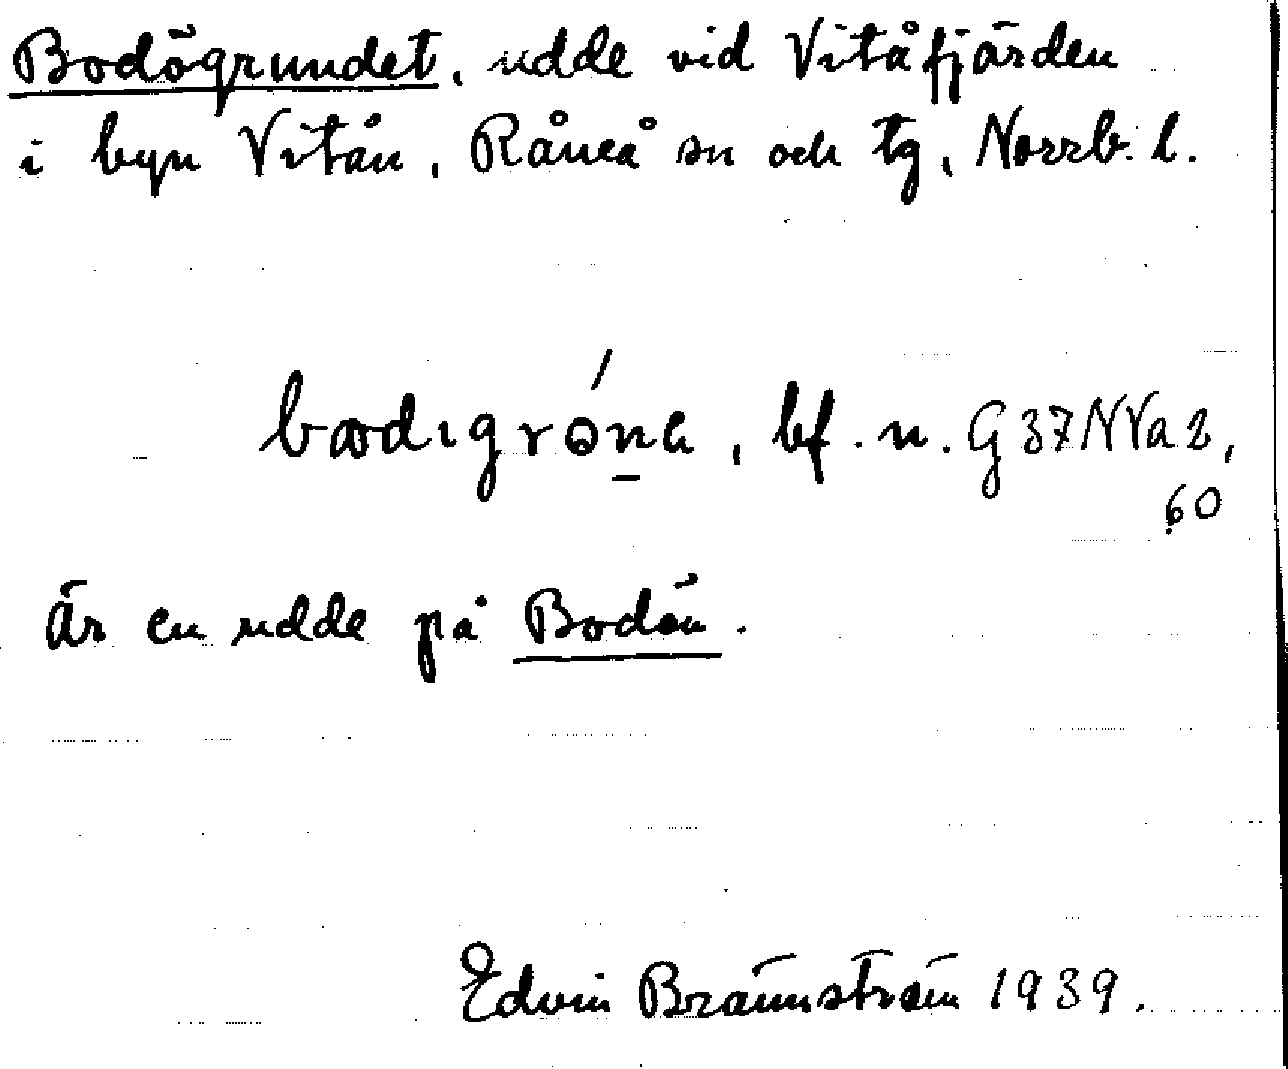 Bodögrundet, udde vid Vitåfjärden
i byn Vitån, Råneå sn och tg, Norrb. l.
bf. n. G 37 N Va 2,
60
Är en udde på Bodön.
Edvin Brännström 1939.